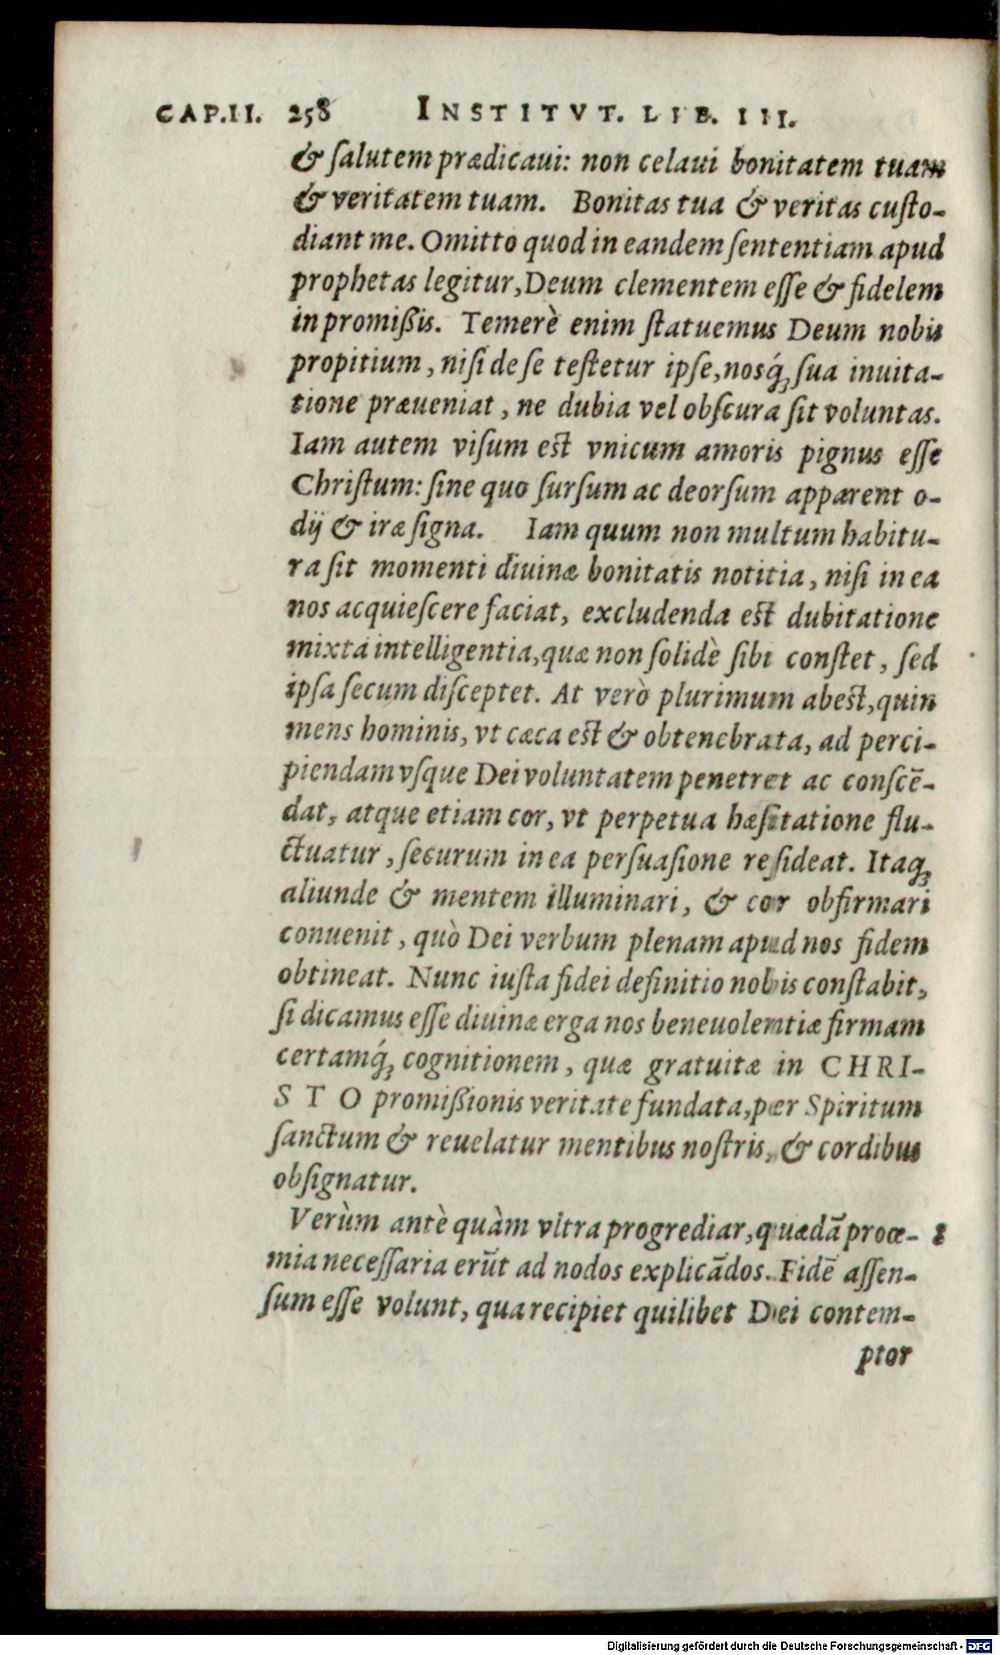 CAP.II. 258 INSTITVT. LIB. III.
& ſalutem prædicaui: non celaui bonitatem tuam
& veritatem tuam. Bonitas tua & veritas cuſto-
diant me. Omitto quod in eandem ſententiam apud
prophetas legitur, Deum clementem eſſe & fidelem
in promißis. Temerè enim ſtatuemus Deum nobis
propitium, niſi de ſe teſtetur ipſe, nosq́; ſua inuita-
tione præueniat, ne dubia vel obſcura ſit voluntas.
Iam autem viſum eſt vnicum amoris pignus eſſe
Chriſtum: ſine quo ſurſum ac deorſum apparent o-
dij & iræ ſigna. Iam quum non multum habitu-
ra ſit momenti diuinæ bonitatis notitia, niſi in ea
nos acquieſcere faciat, excludenda eſt dubitatione
mixta intelligentia, quæ non ſolidè ſibi conſtet, ſed
ipſa ſecum diſceptet. At verò plurimum abeſt, quin
mens hominis, vt cæca eſt & obtenebrata, ad perci-
piendam vſque Dei voluntatem penetret ac conſcē-
dat, atque etiam cor, vt perpetua hæſitatione flu-
ctuatur, ſecurum in ea perſuaſione reſideat. Itaq;
aliunde & mentem illuminari, & cor obfirmari
conuenit, quò Dei verbum plenam apud nos fidem
obtineat. Nunc iuſta fidei definitio nobis conſtabit,
ſi dicamus eſſe diuinæ erga nos beneuolentiæ firmam
certamq́; cognitionem, quæ gratuitæ in CHRI-
STO promißionis veritate fundata, per Spiritum
ſanctum & reuelatur mentibus noſtris, & cordibus
obſignatur.
Verùm antè quàm vltra progrediar, quædā proœ- 8
mia neceſſaria erūt ad nodos explicādos. Fidē aſſen-
ſum eſſe volunt, qua recipiet quilibet Dei contem-
ptor
Digitalisierung gefördert durch die Deutsche Forschungsgemeinschaft - DFG